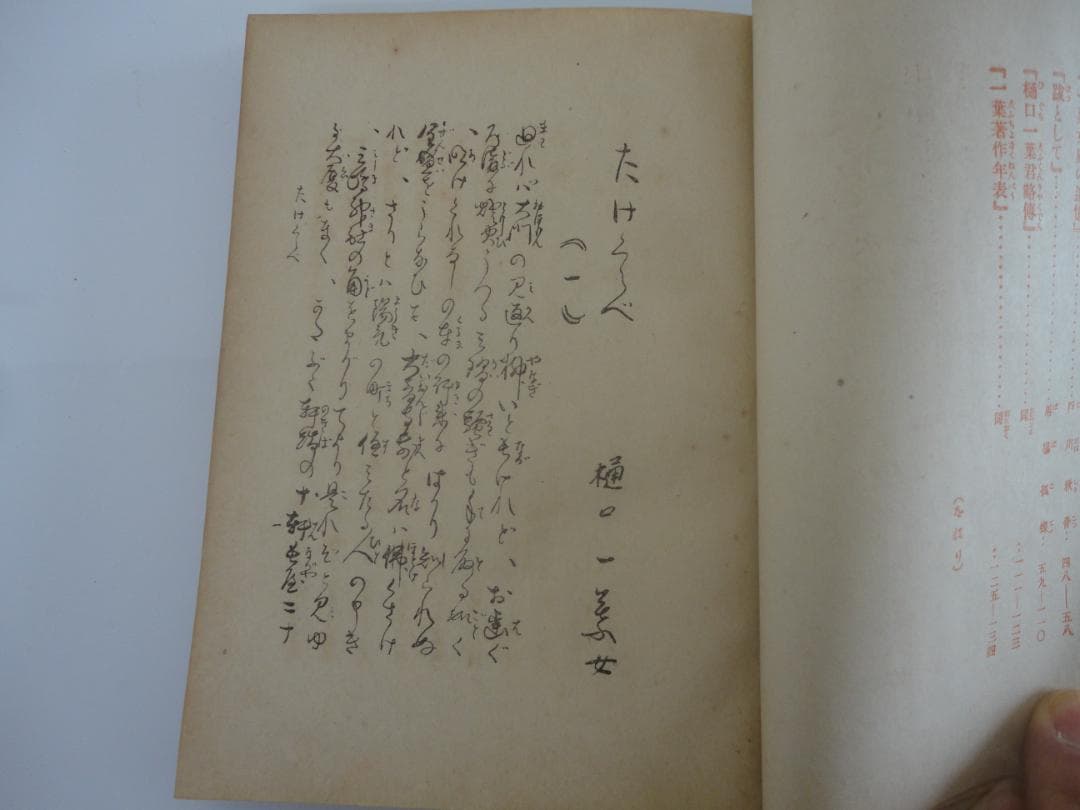 『跋として』
戸川秋骨‥四八―五八
『樋口一葉君略傳』
馬場孤蝶‥五九―一一〇
『一葉著作年表』
(をはり)
たけくらべ
樋口一葉女
(一)
廻れば大門の見返り柳いと長けれど、お歯ぐ
ろ溝に燈火うつる三階の騒ぎも手に取る如く
、明けくれなしの車の行来にはかり知られぬ
全盛をうらなひて、大音寺前と名は佛くさけ
れど、さりとは陽気の町と住みたる人の申き
、三嶋神社の角をまがりてより是れぞと見ゆ
る大厦もなく、かたぶく軒端の十軒長屋二十
たけくらべ